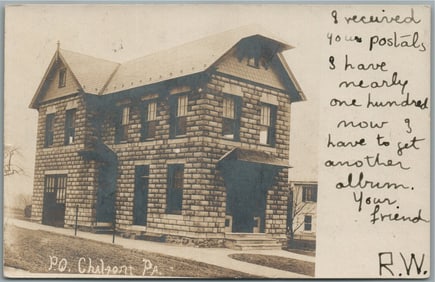 I received
your postals
I have
nearly
one hundred
now I
have to get
another
album.
Your
friend
R.W.
P.O. Pa.